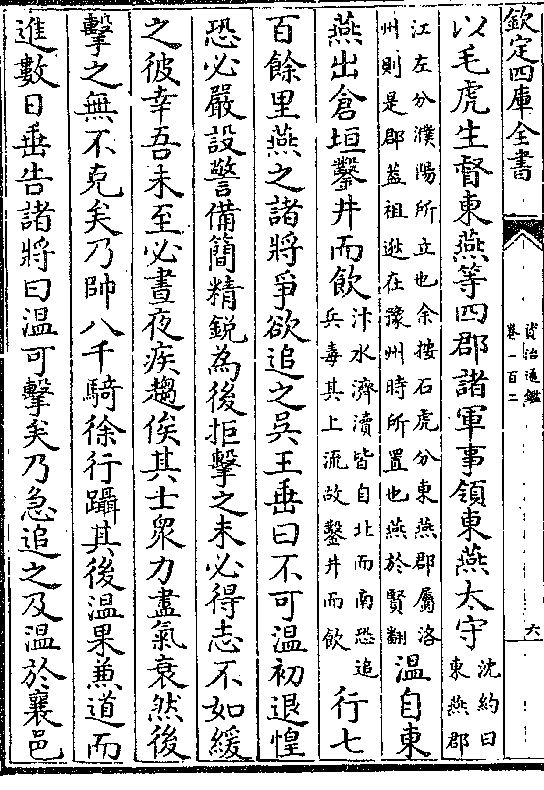 欽定四庫全書
資治通鑑
卷一百二
六
以毛虎生督東燕等四郡諸軍事領東燕太守
沈約曰
東燕郡
江左分濮陽所立也余按石虎分東燕郡屬洛
州則是郡蓋祖逖在豫州時所置也燕於賢翻
温自東
燕出倉垣鑿井而飲
汴水濟瀆皆自北而南恐追
兵毒其上流故鑿井而飲
行七
百餘里燕之諸將爭欲追之吳王垂曰不可温初退惶
恐必嚴設警備簡精鋭為後拒擊之未必得志不如緩
之彼幸吾未至必晝夜疾趨俟其士眾力盡氣衰然後
擊之無不克矣乃帥八千騎徐行躡其後温果兼道而
進數日垂告諸將曰温可擊矣乃急追之及温於襄邑